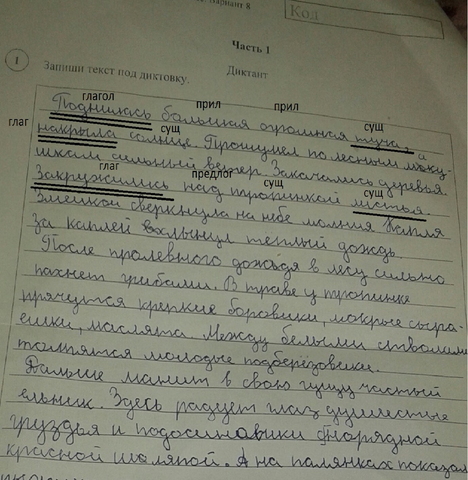 Вариант 8
Код
Часть 1
1 Запиши текст под диктовку. Диктант
глагол прил прил сущ
Поднялась большая огромная туча, а
глаг сущ
накрыла солнце. Прошумел по лесным маку-
шкам сильный ветер. Закачались деревья.
глаг предлог сущ сущ
Закружились над тропинкой листья
Змейкой сверкнула на небе молния Капля
за каплей хлынул теплый дождь
После пролевного дождя в лесу сильно
пахнет грибами. В траве у тропинке
прячутся крепкие боровики, мокрые сыро-
ешки, маслята. Между белыми стволами
толпятся молодые подберёзовики.
Дальше манит в свою гущу частый
ельник. Здесь радует глаз душистые
груздья и подосиновики
красной шляпой. А на полянках показал